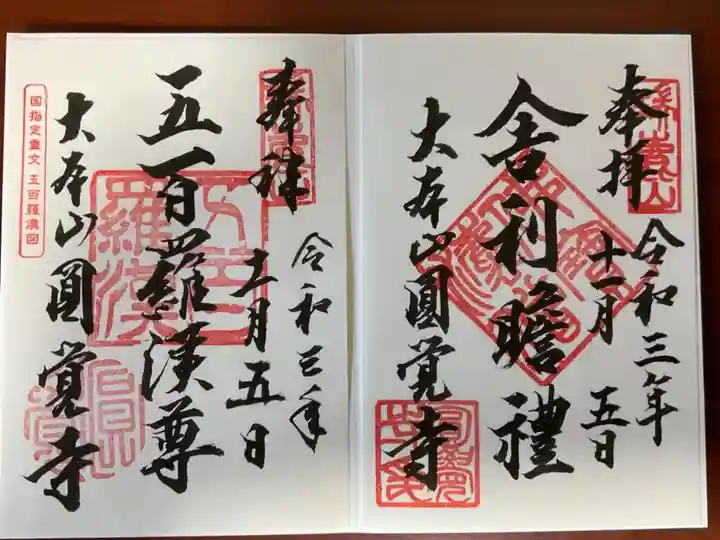 奉拝
令和三年
十一月五日
舎利瞻禮
大本山圓覚寺
奉拝
令和三年
十一月五日
五百羅漢尊
大本山圓覚寺
国指定重文 五百羅漢図
五百羅漢